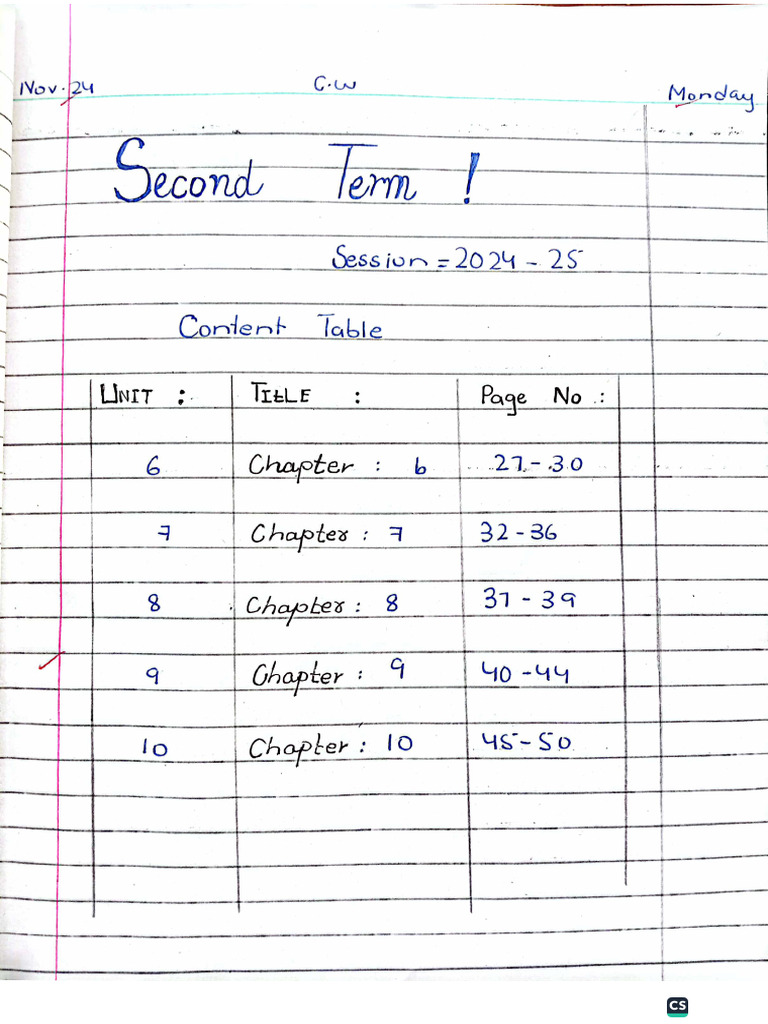 Nov. 24 C.W Monday
Second Term !
Session = 2024 - 25
Content Table
UNIT : TITLE : Page No :
6 Chapter : 6 27 - 30
7 Chapter : 7 32 - 36
8 Chapter : 8 37 - 39
9 Chapter : 9 40 - 44
10 Chapter : 10 45 - 50
CS